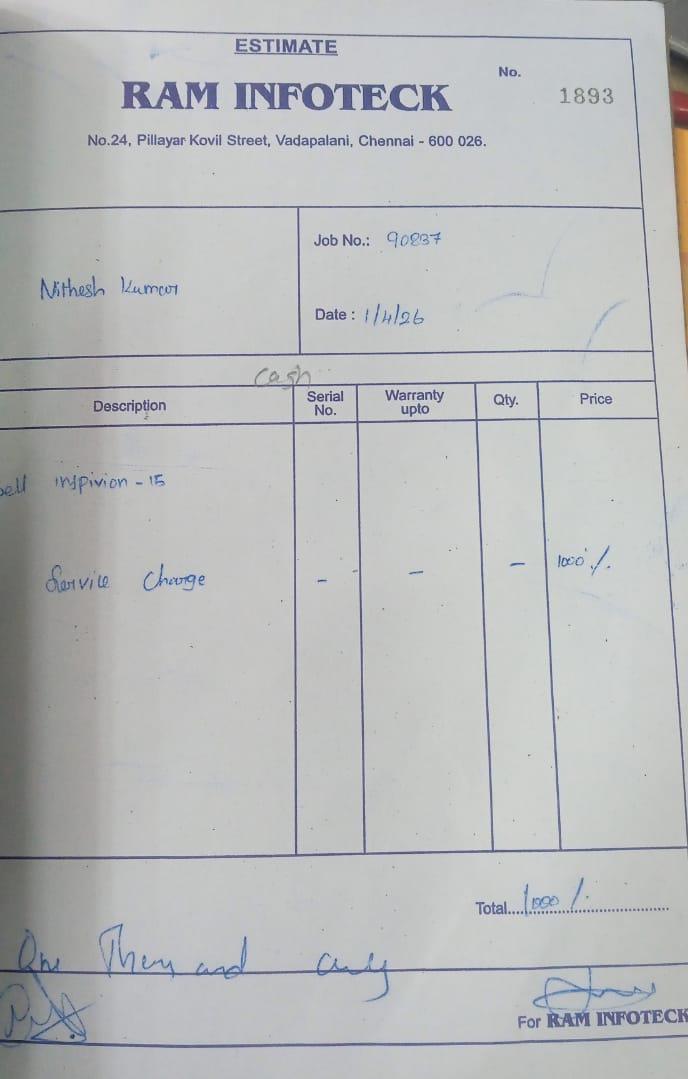 ESTIMATE
No.
RAM INFOTECK
1893
No.24, Pillayar Kovil Street, Vadapalani, Chennai - 600 026.
Job No.: 90837
Nithesh Kumar
Date : 1/4/26
Cash
Description Serial No. Warranty upto Qty. Price
Dell inspivion - 15
Service Charge - - - 1000/.
Total....1000/.
One Thousand only
For RAM INFOTECK